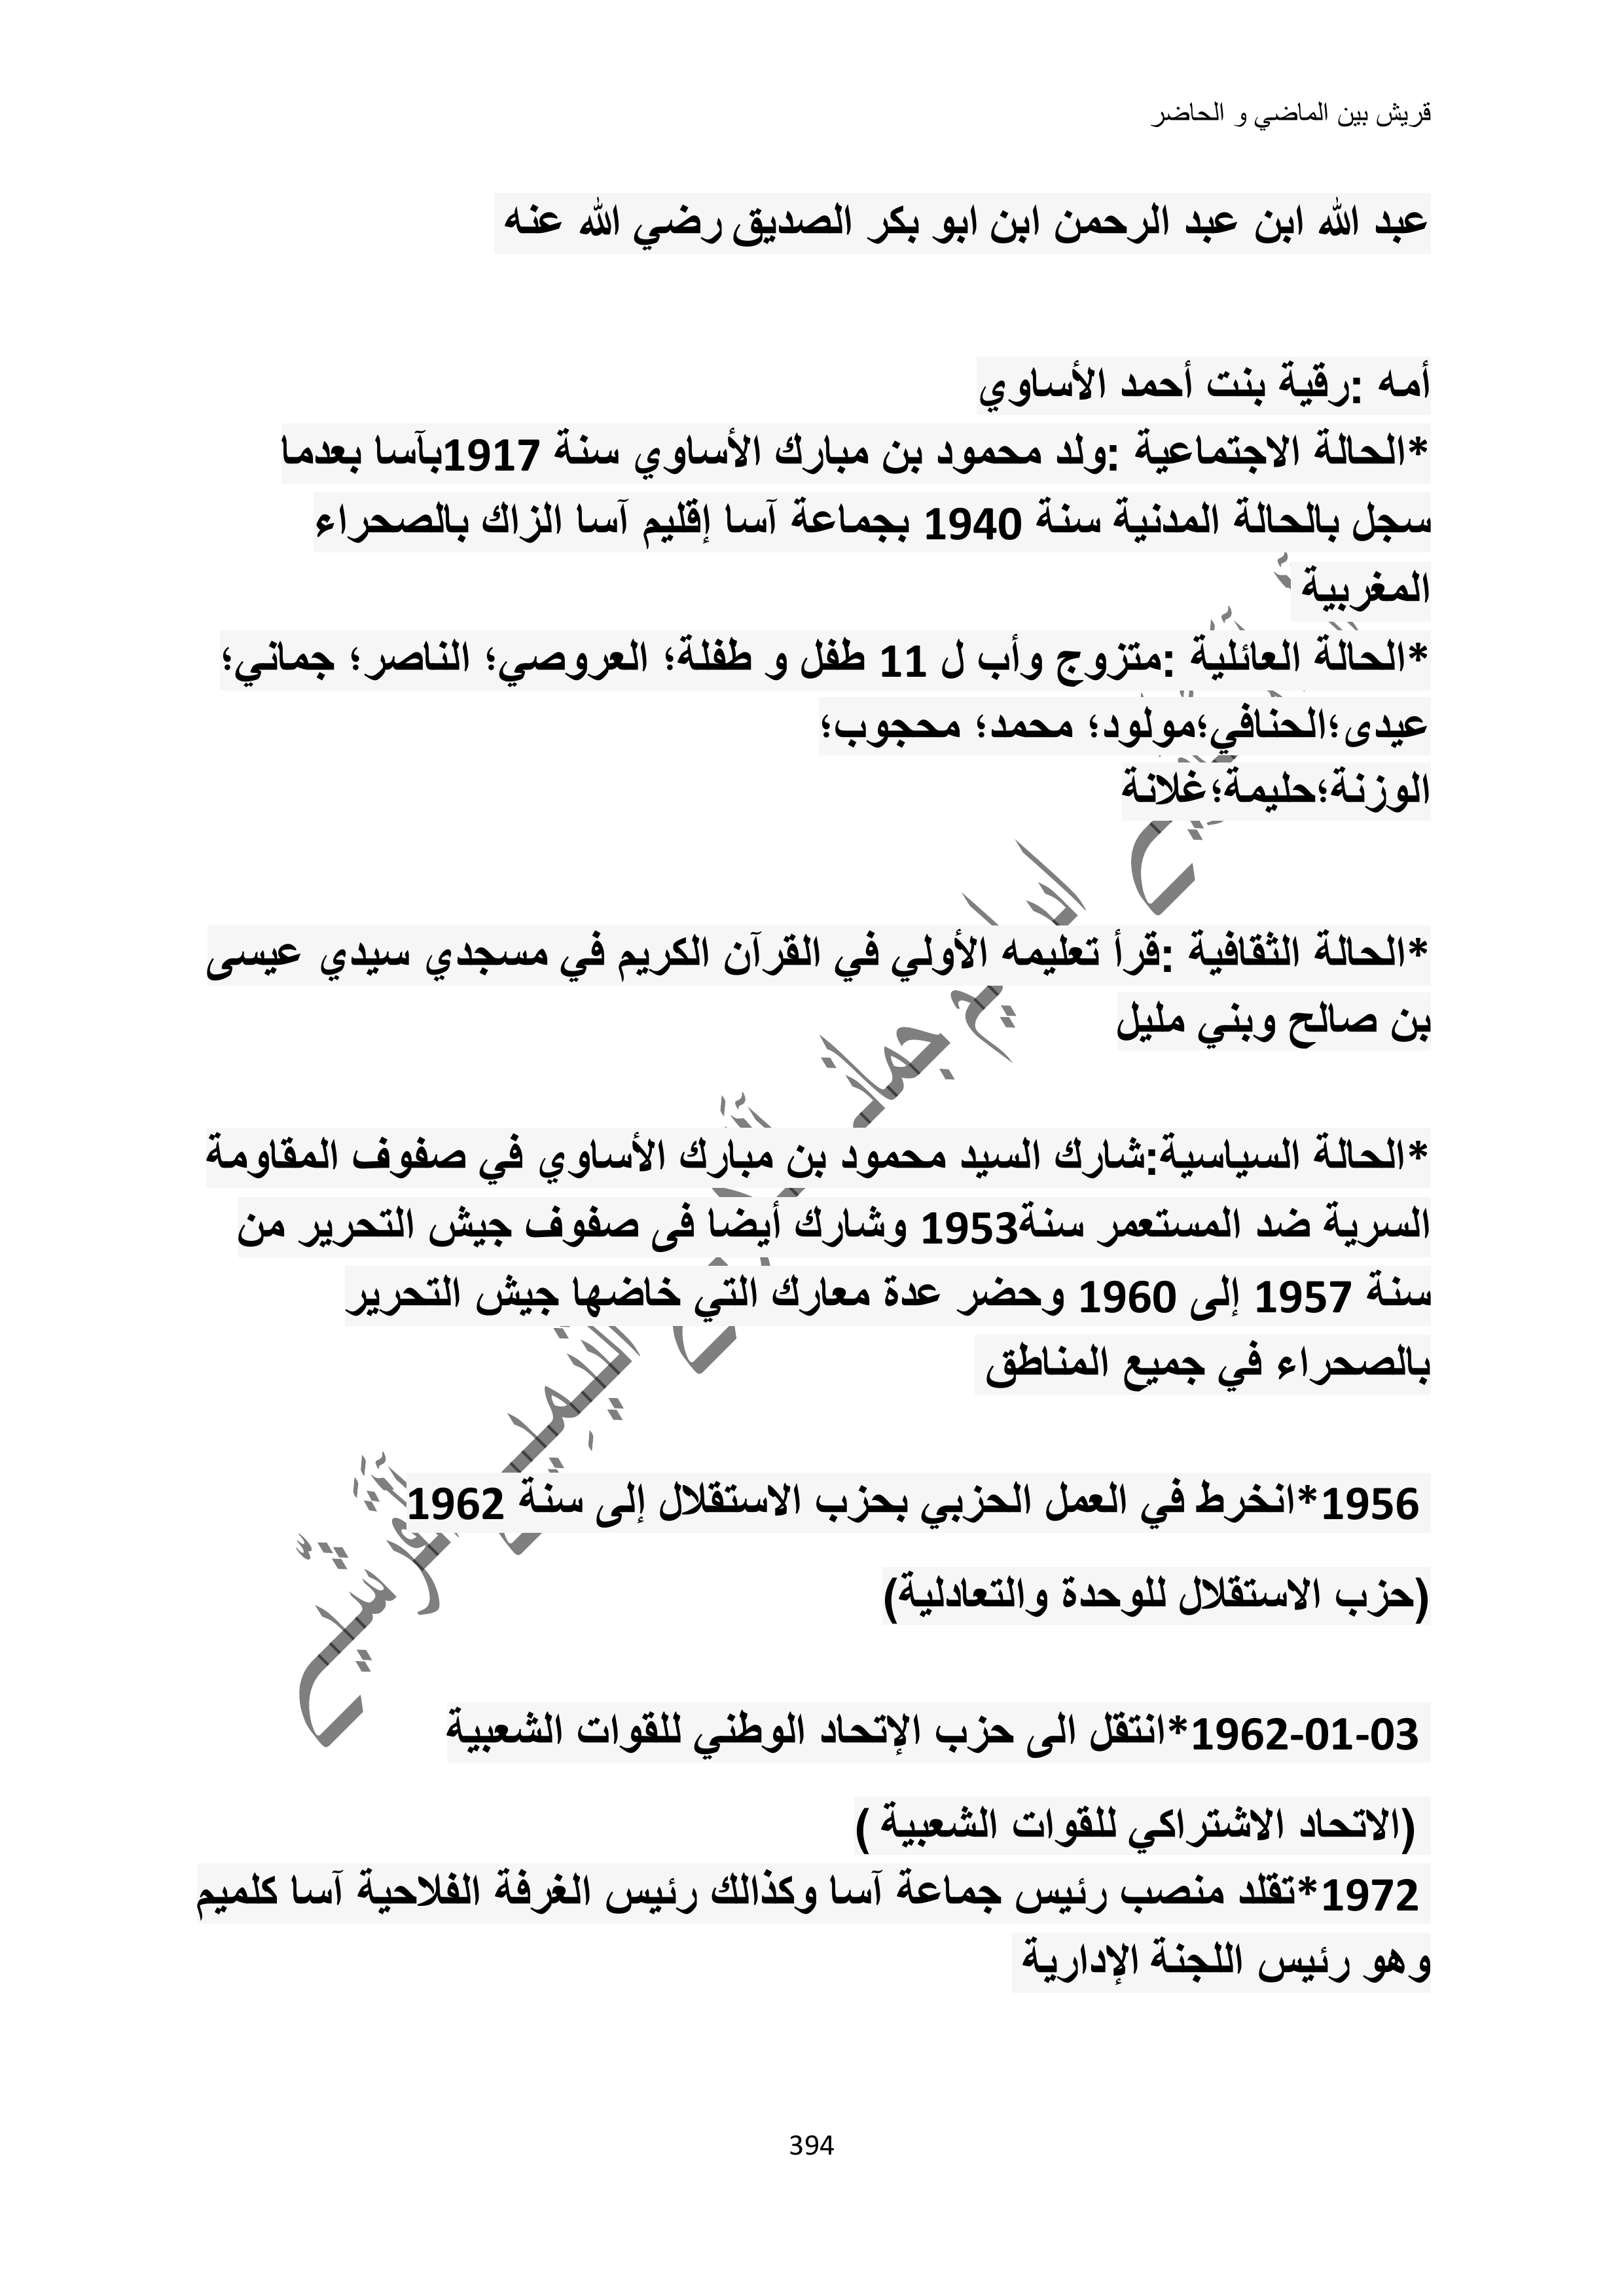 قريش بين الماضي و الحاضر
عبد الله ابن عبد الرحمن ابن ابو بكر الصديق رضي الله عنه
أمه :رقية بنت أحمد الأساوي
*الحالة الاجتماعية :ولد محمود بن مبارك الأساوي سنة 1917بآسا بعدما
سجل بالحالة المدنية سنة 1940 بجماعة آسا إقليم آسا الزاك بالصحراء
المغربية
*الحالة العائلية :متزوج وأب ل 11 طفل و طفلة؛ العروصي؛ الناصر؛ جماني؛
عيدى؛الحنافي؛مولود؛ محمد؛ محجوب؛
الوزنة؛حليمة؛غلانة
*الحالة الثقافية :قرأ تعليمه الأولي في القرآن الكريم في مسجدي سيدي عيسى
بن صالح وبني مليل
*الحالة السياسية:شارك السيد محمود بن مبارك الأساوي في صفوف المقاومة
السرية ضد المستعمر سنة1953 وشارك أيضا فى صفوف جيش التحرير من
سنة 1957 إلى 1960 وحضر عدة معارك التي خاضها جيش التحرير
بالصحراء في جميع المناطق
1956*انخرط في العمل الحزبي بحزب الاستقلال إلى سنة 1962
(حزب الاستقلال للوحدة والتعادلية)
1962-01-03*انتقل الى حزب الإتحاد الوطني للقوات الشعبية
(الاتحاد الاشتراكي للقوات الشعبية )
1972*تقلد منصب رئيس جماعة آسا وكذالك رئيس الغرفة الفلاحية آسا كلميم
وهو رئيس اللجنة الإدارية
394